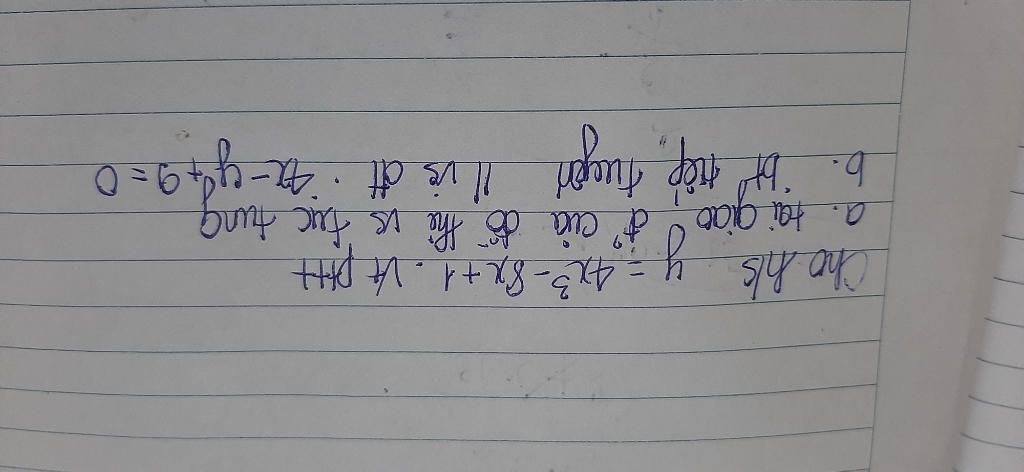 Cho h/s y = 4x³ - 8x + 1. Vt pttt
a. tại giao đ° của đồ thị vs trục tung
b. bt tiếp tuyến // vs đt : 4x - y + 9 = 0